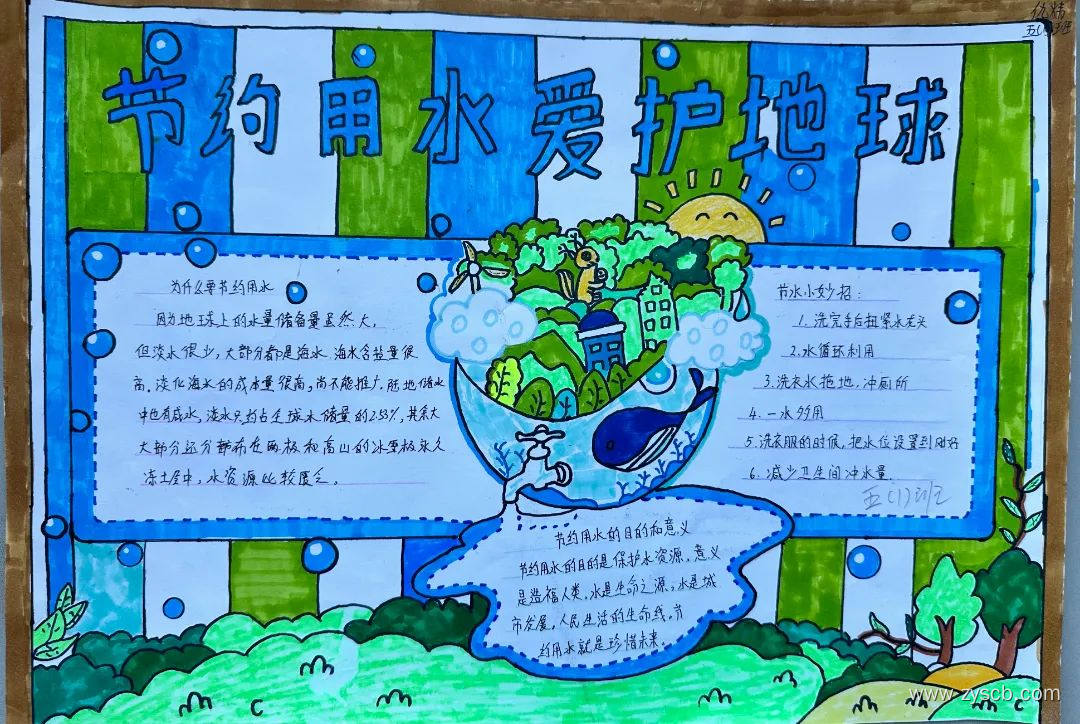 五(1)班
节约用水爱护地球
为什么要节约用水
因为地球上的水量储备量虽然大,
但淡水很少,大部分都是海水.海水含盐量很
高.淡化海水的成本量很高,尚不能推广.陆地储水
中也有咸水,淡水只约占全球水储量的2.53%,其余大
大部分还分部布在两极和高山的冰雪极永久
冻土层中,水资源比较匮乏.
节水小妙招:
1.洗完手后扭紧水龙头
2.水循环利用
3.洗衣水拖地,冲厕所
4.一水多用
5.洗衣服的时候,把水位设置到刚好
6.减少卫生间冲水量.
五(1)班
节约用水的目的和意义
节约用水的目的是保护水资源,意义
是造福人类.水是生命之源,水是城
市发展,人民生活的生命线.节
约用水就是珍惜未来.
www.zyscb.com